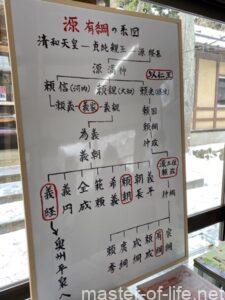 源 有綱 の系図
清和天皇―貞純親王―源経基
源満仲
頼信(河内) 頼親(大和) 頼光(摂津)
頼義―義家―義親
頼国
頼綱
仲政
為義
義朝
源三位頼政
義経 義円 全成 範頼 希義 頼朝 朝長 義平
仲綱
奥州平泉へ
有綱
宗綱
master-of-life.net